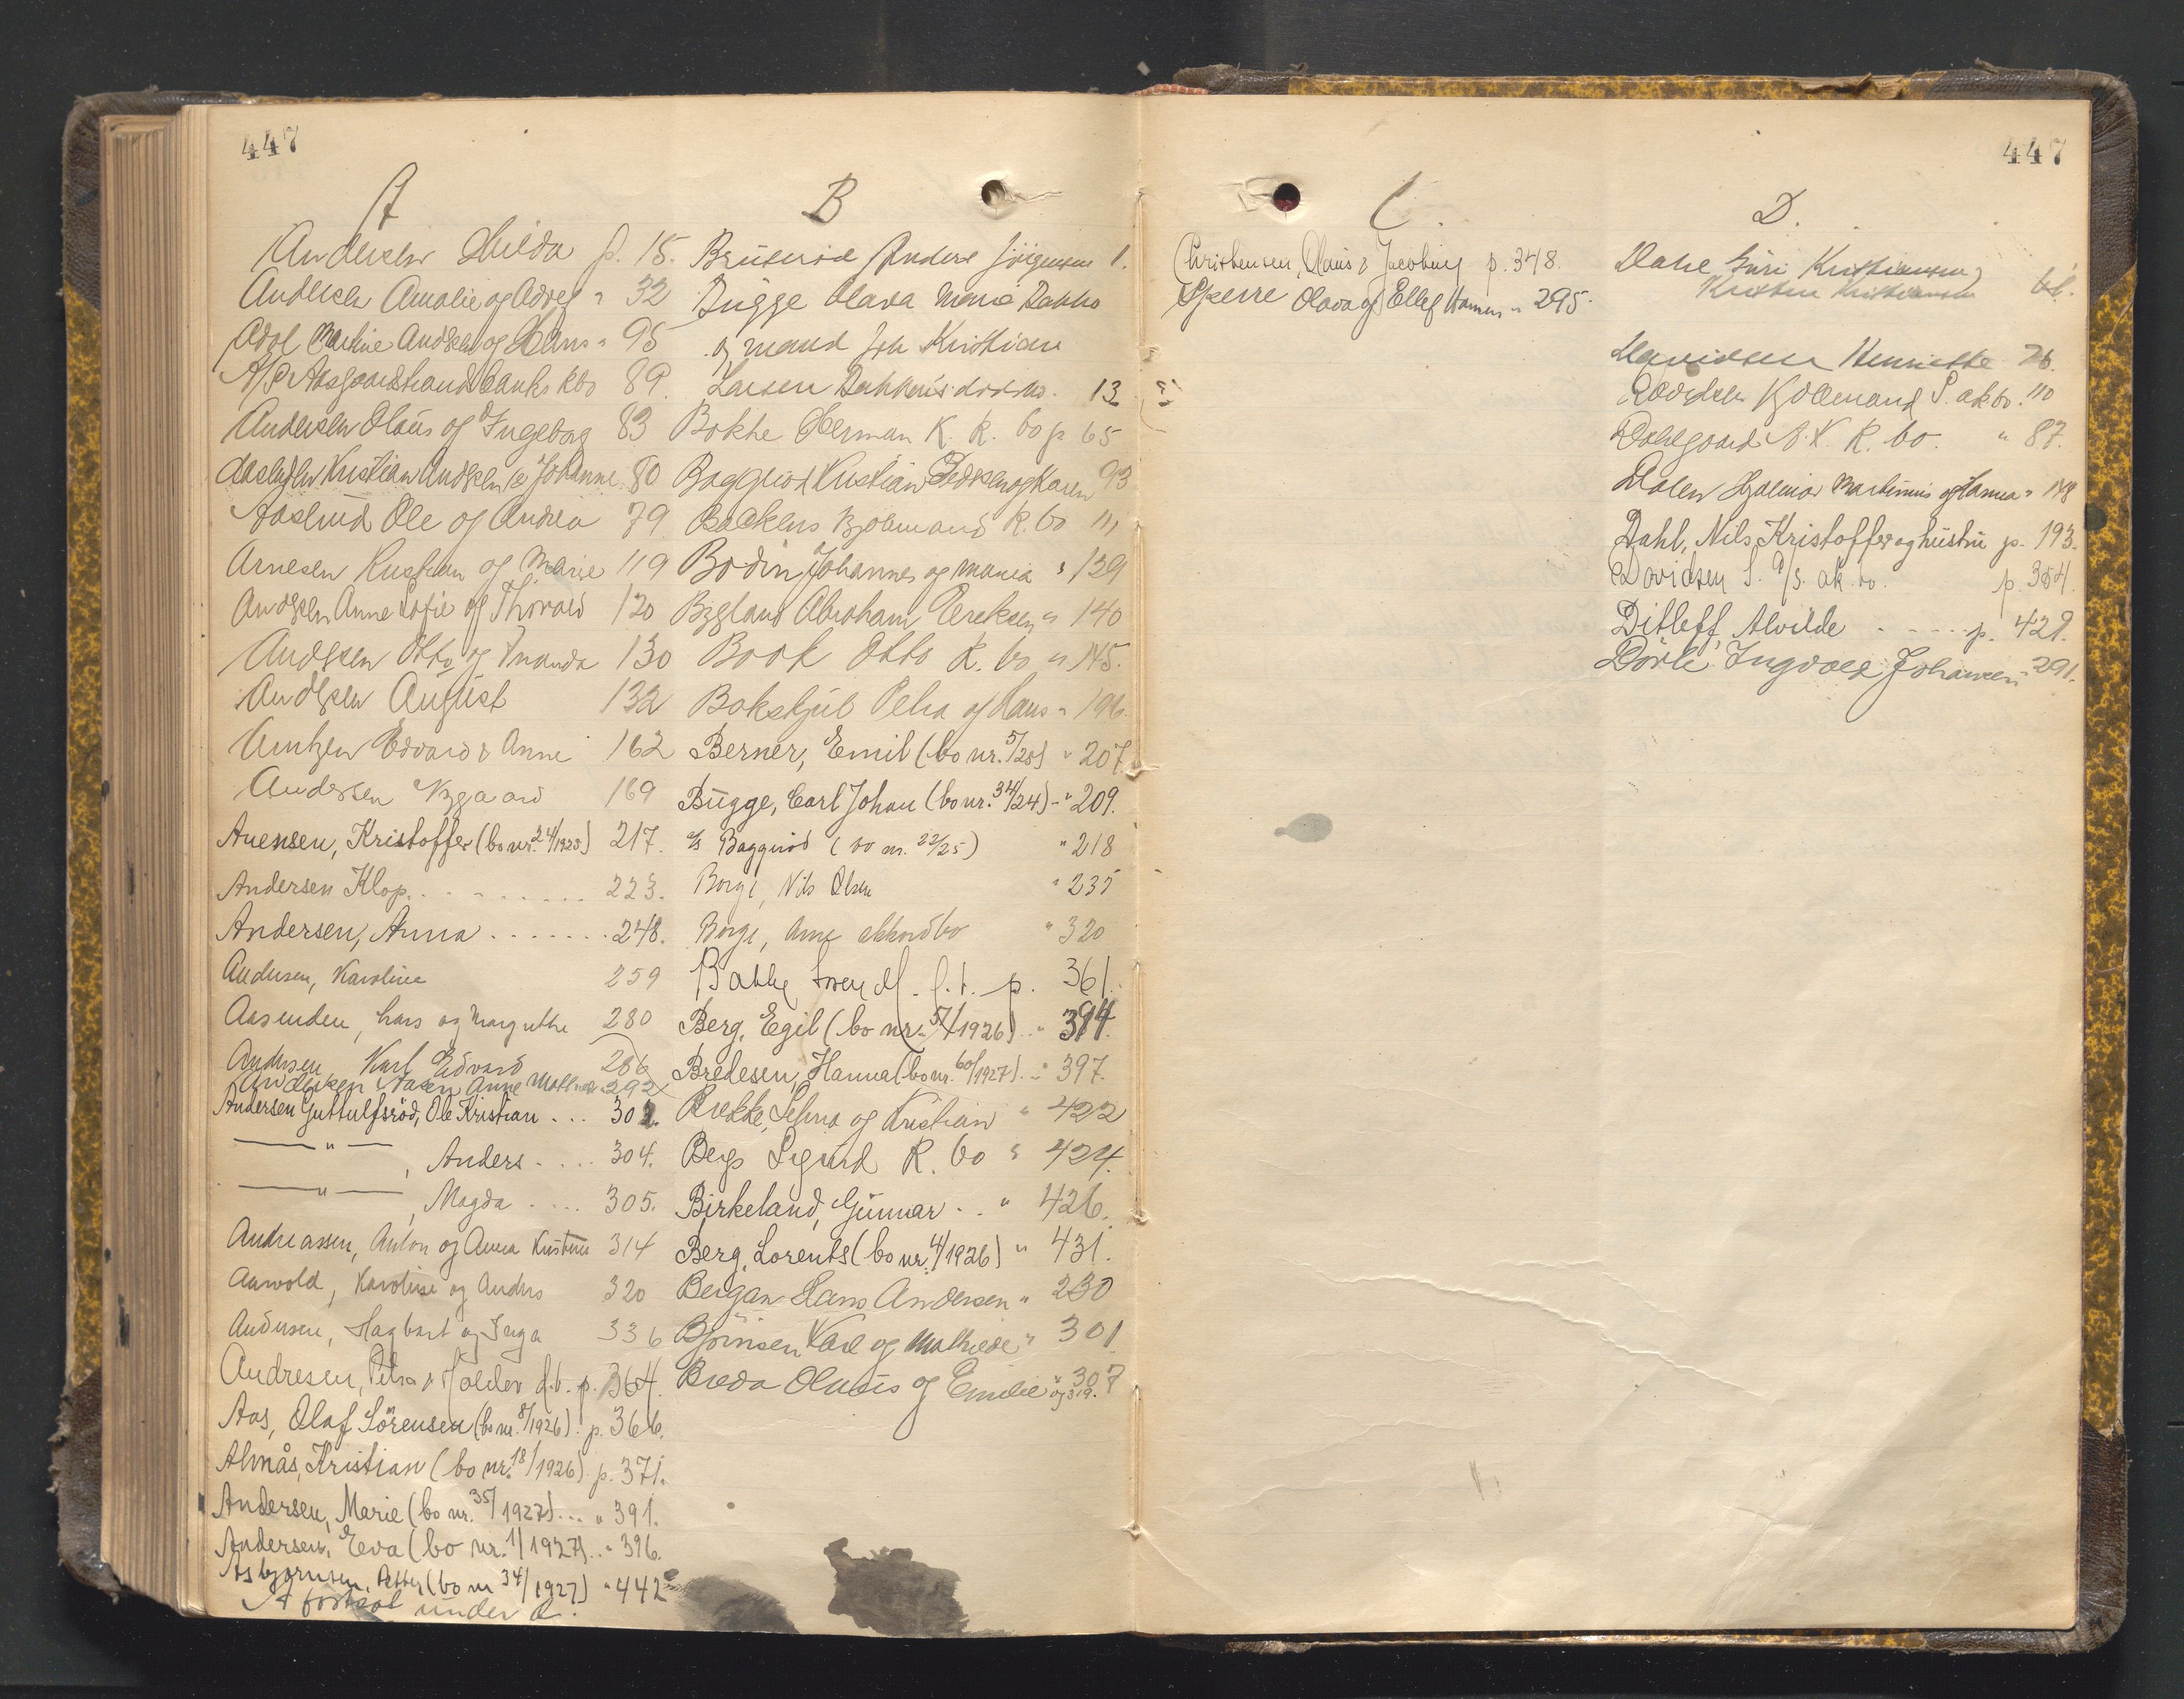 447
A
Andersen Hilda p. 15.
Andersen Amalie og Adolf " 32
Adol Martine Andersen og Hans " 95
A/S Aasgaardstrands banks kbo 89.
Andersen Olaus og Ingeborg 83
Kristian Andersen & Johanne 80
Aaslund Ole og Andrea 79
Arnesen Kristian og Marie 119
Andersen Anne Sofie og Thorvald 120
Andersen Otto og Amanda 130
Andersen August 132
Arntzen Edvard & Anne 162
Andersen Nygaard 169
Auensen, Kristoffer (bo nr. 24/1925) 217.
Andersen Klop. . . . . . . . . 223.
Andersen, Anna . . . . . . . 248.
Andersen, Karoline 259
Aasenden, Lars og Margrethe 280
Andersen Karl Edvard 286
Andersen Aasen Anne Mathea 292
Andersen Guttulfsröd, Ole Kristian . . . 302.
— " — , Anders . . . . 304.
— " — , Magda . . . . 305.
Andreassen, Anton og Anna Kristine 314
Aarvold, Karoline og Anders 320
Andersen, Hagbart og Inga 336
Andresen, Petra & Halder d.b. p. 364.
Aas, Olaf Sörensen (bo nr. 8/1926). p. 366.
Almås, Kristian (bo nr. 18/1926) p. 371.
Andersen, Marie (bo nr. 35/1927) . . . " 391.
Andersen, Eva (bo nr. 1/1927) . . " 396.
Asbjørnsen, Petter (bo nr 34/1927) " 442
A fortsat under Q.
B
Anders Jörgensen 1.
Bugge Olava Marie
og mand Joh Kristian
Larsen 13
Bokhe Herman K. K. bo p 65
Baggeröd Kristian Pedersen og Karen 93
Backens Hjalmand K. bo 111
Bodin Johannes og Maria " 139
Bygland Abraham Ereksen " 140
Book Otto K. bo " 145.
Bokskjul Petra og Hans " 196.
Berner, Emil (bo nr. 5/25) " 207.
Bugge, Carl Johan (bo nr. 34/24) - " 209.
a/s Baggeröd (bo nr. 22/25) " 218
Borge, Nils Olsen " 235
Borge, Arne akkordbo " 320
Bakke p. 361.
Berg, Egil (bo nr. 57/1926) . . " 394.
Bredesen, Hanna (bo nr. 60/1927) . - " 397.
Brekke, Selma og Kristian " 422
Berg Sigurd K. bo " 424.
Birkeland, Gunnar . . " 426.
Berg, Lorents (bo nr. 4/1926) " 431.
Bergan Hans Andersen " 230
Björnsen Karl og Mathilde " 301
Breda Olaus og Emilie " 307
og 319.
447
C.
Christensen, Olaus & Jacobine p. 348.
Sperre Olava og Ellef Hansen " 295.
D.
Dahl Siri Kristiansen &
Kristen Kristiansen 61.
Davidsen Henriette 76.
Hjalmand S. ak bo. 110
Dalegaard A. K. K. bo. " 87.
Dalen Hjalmar Martinius og Hanna " 148
Dahl, Nils Kristoffer og hustru p. 193.
Davidsen S. a/s. ak. bo. p. 354.
Ditleff, Alvilde . . . . . p. 429.
Dörle Ingvald Johansen " 291.